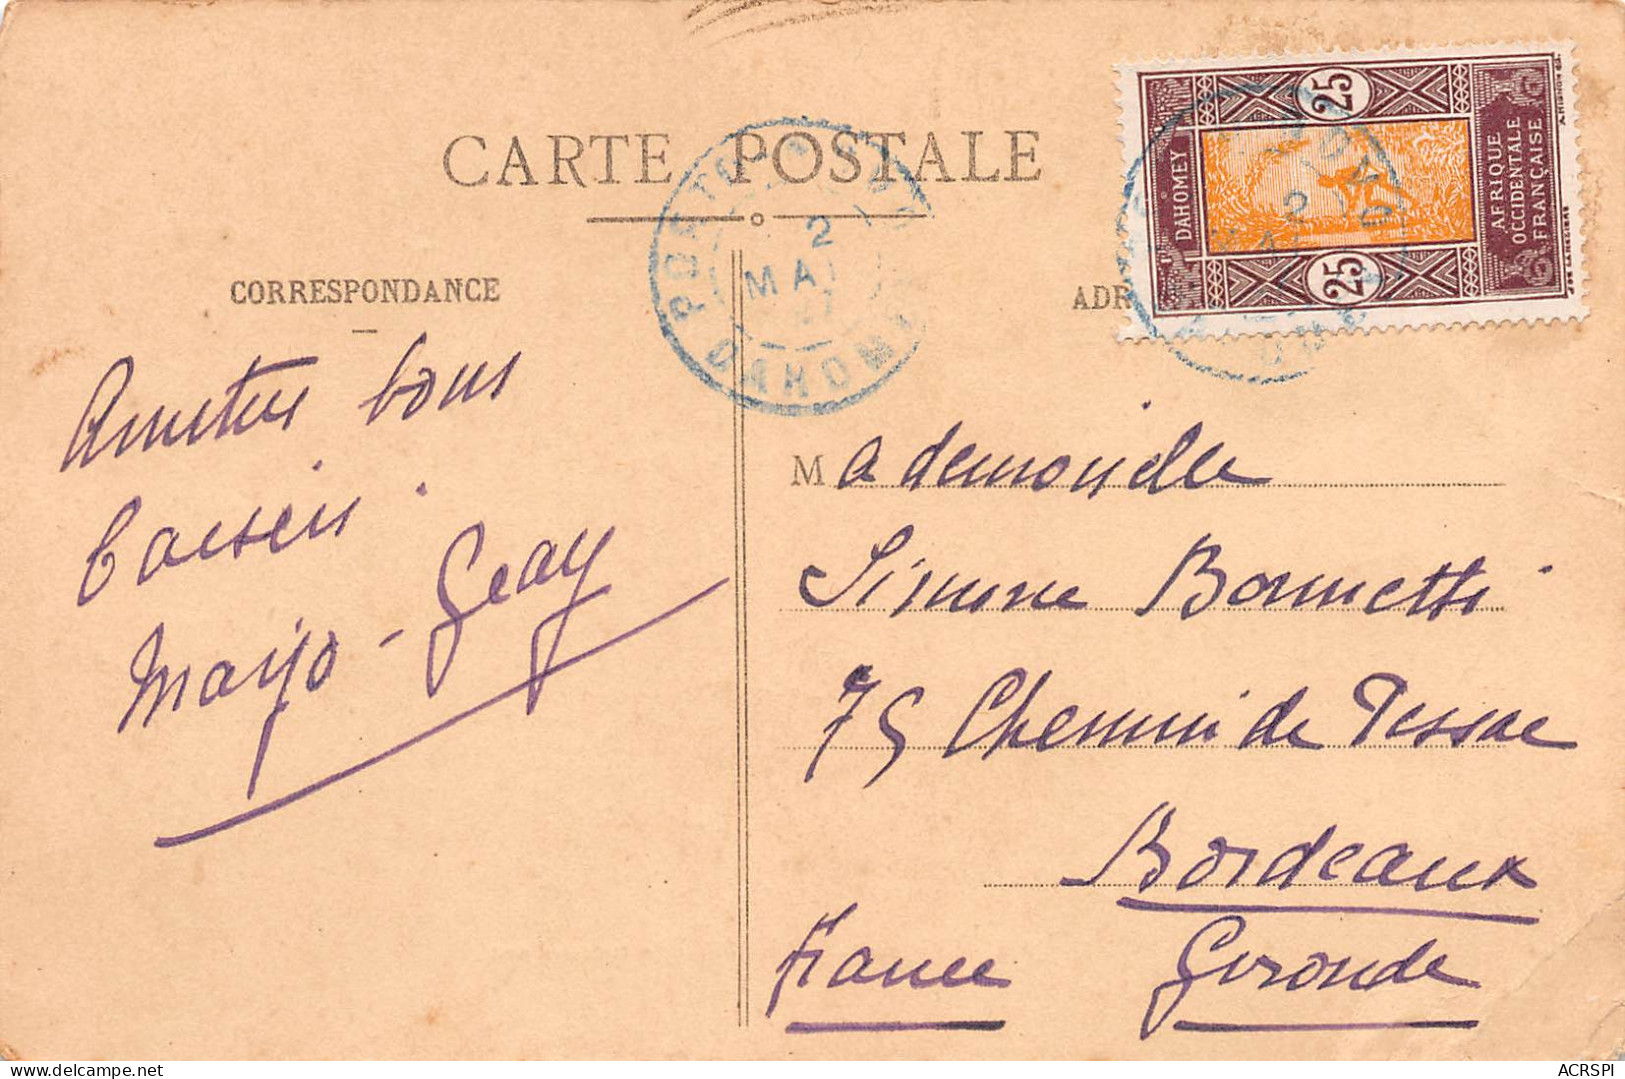 CARTE POSTALE
CORRESPONDANCE
ADR
25
DAHOMEY
AFRIQUE
OCCIDENTALE
FRANÇAISE
25
PORTO
2
MAI
DAHOMEY
2
Amitiés bons
baisers.
Mayo - Geay
Mademoiselle
Simone Bonnetti
75 Chemin de Pessac
Bordeaux
France Gironde
delcampe.net
ACRSPI